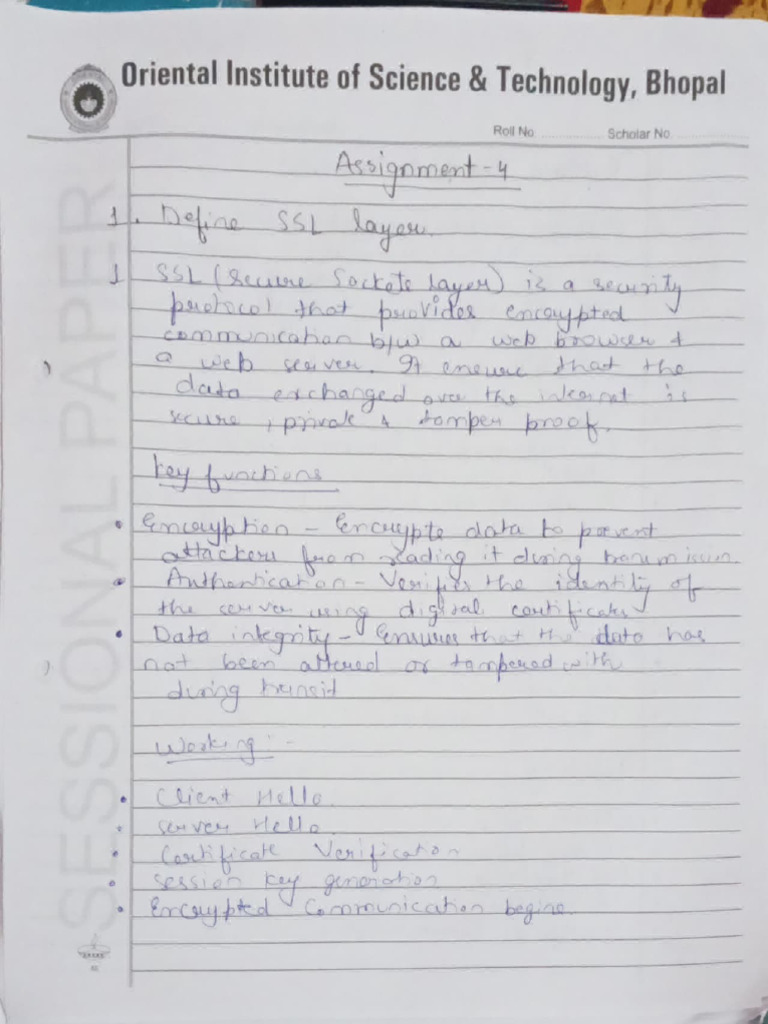 Oriental Institute of Science & Technology, Bhopal
Roll No. ............... Scholar No. ...............
SESSIONAL PAPER
Assignment-4
1. Define SSL layer.
1 SSL (Secure Sockets layer) is a security
protocol that provides encrypted
communication b/w a web browser &
a web server. It ensure that the
data exchanged over the internet is
secure, private & tamper proof.
Key functions
• Encryption - Encrypte data to prevent
attackers from reading it during transmission
• Authentication - Verifies the identity of
the server using digital certificates
• Data integrity - Ensures that the data has
not been altered or tampered with
during transit
Working :-
• Client Hello
• server Hello
• Certificate Verification
• session key generation
• Encrypted Communication begins